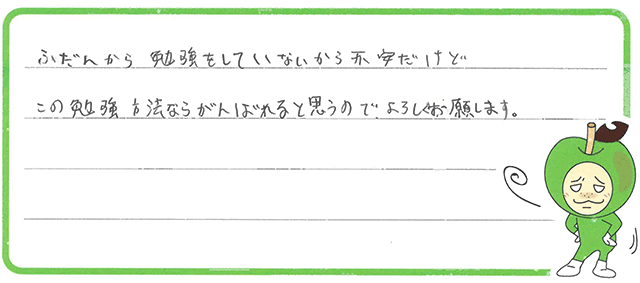 ふだんから 勉強をしていないから不安だけど
この勉強方法ならがんばれると思うので、よろしくお願いします。